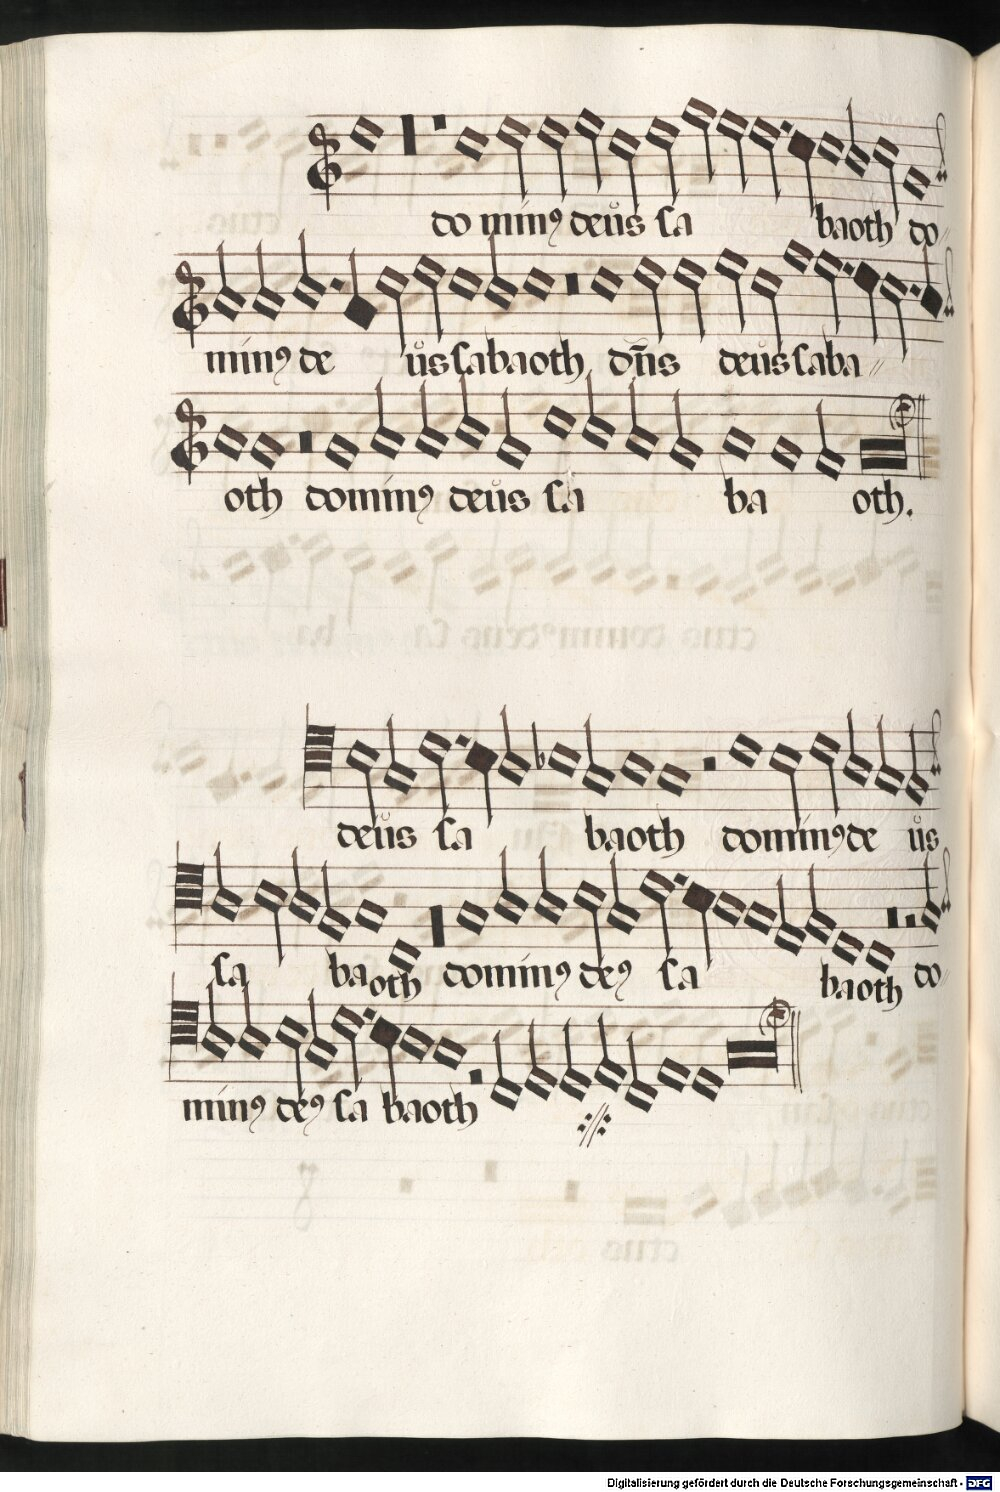 do minꝰ deus sa baoth do
minꝰ de us sabaoth, dn̄s deus saba
oth dominꝰ deus sa ba oth.
deus sa baoth dominꝰ de us
sa ba oth dominꝰ deꝰ sa baoth do
minꝰ deꝰ sa baoth
Digitalisierung gefördert durch die Deutsche Forschungsgemeinschaft - DFG